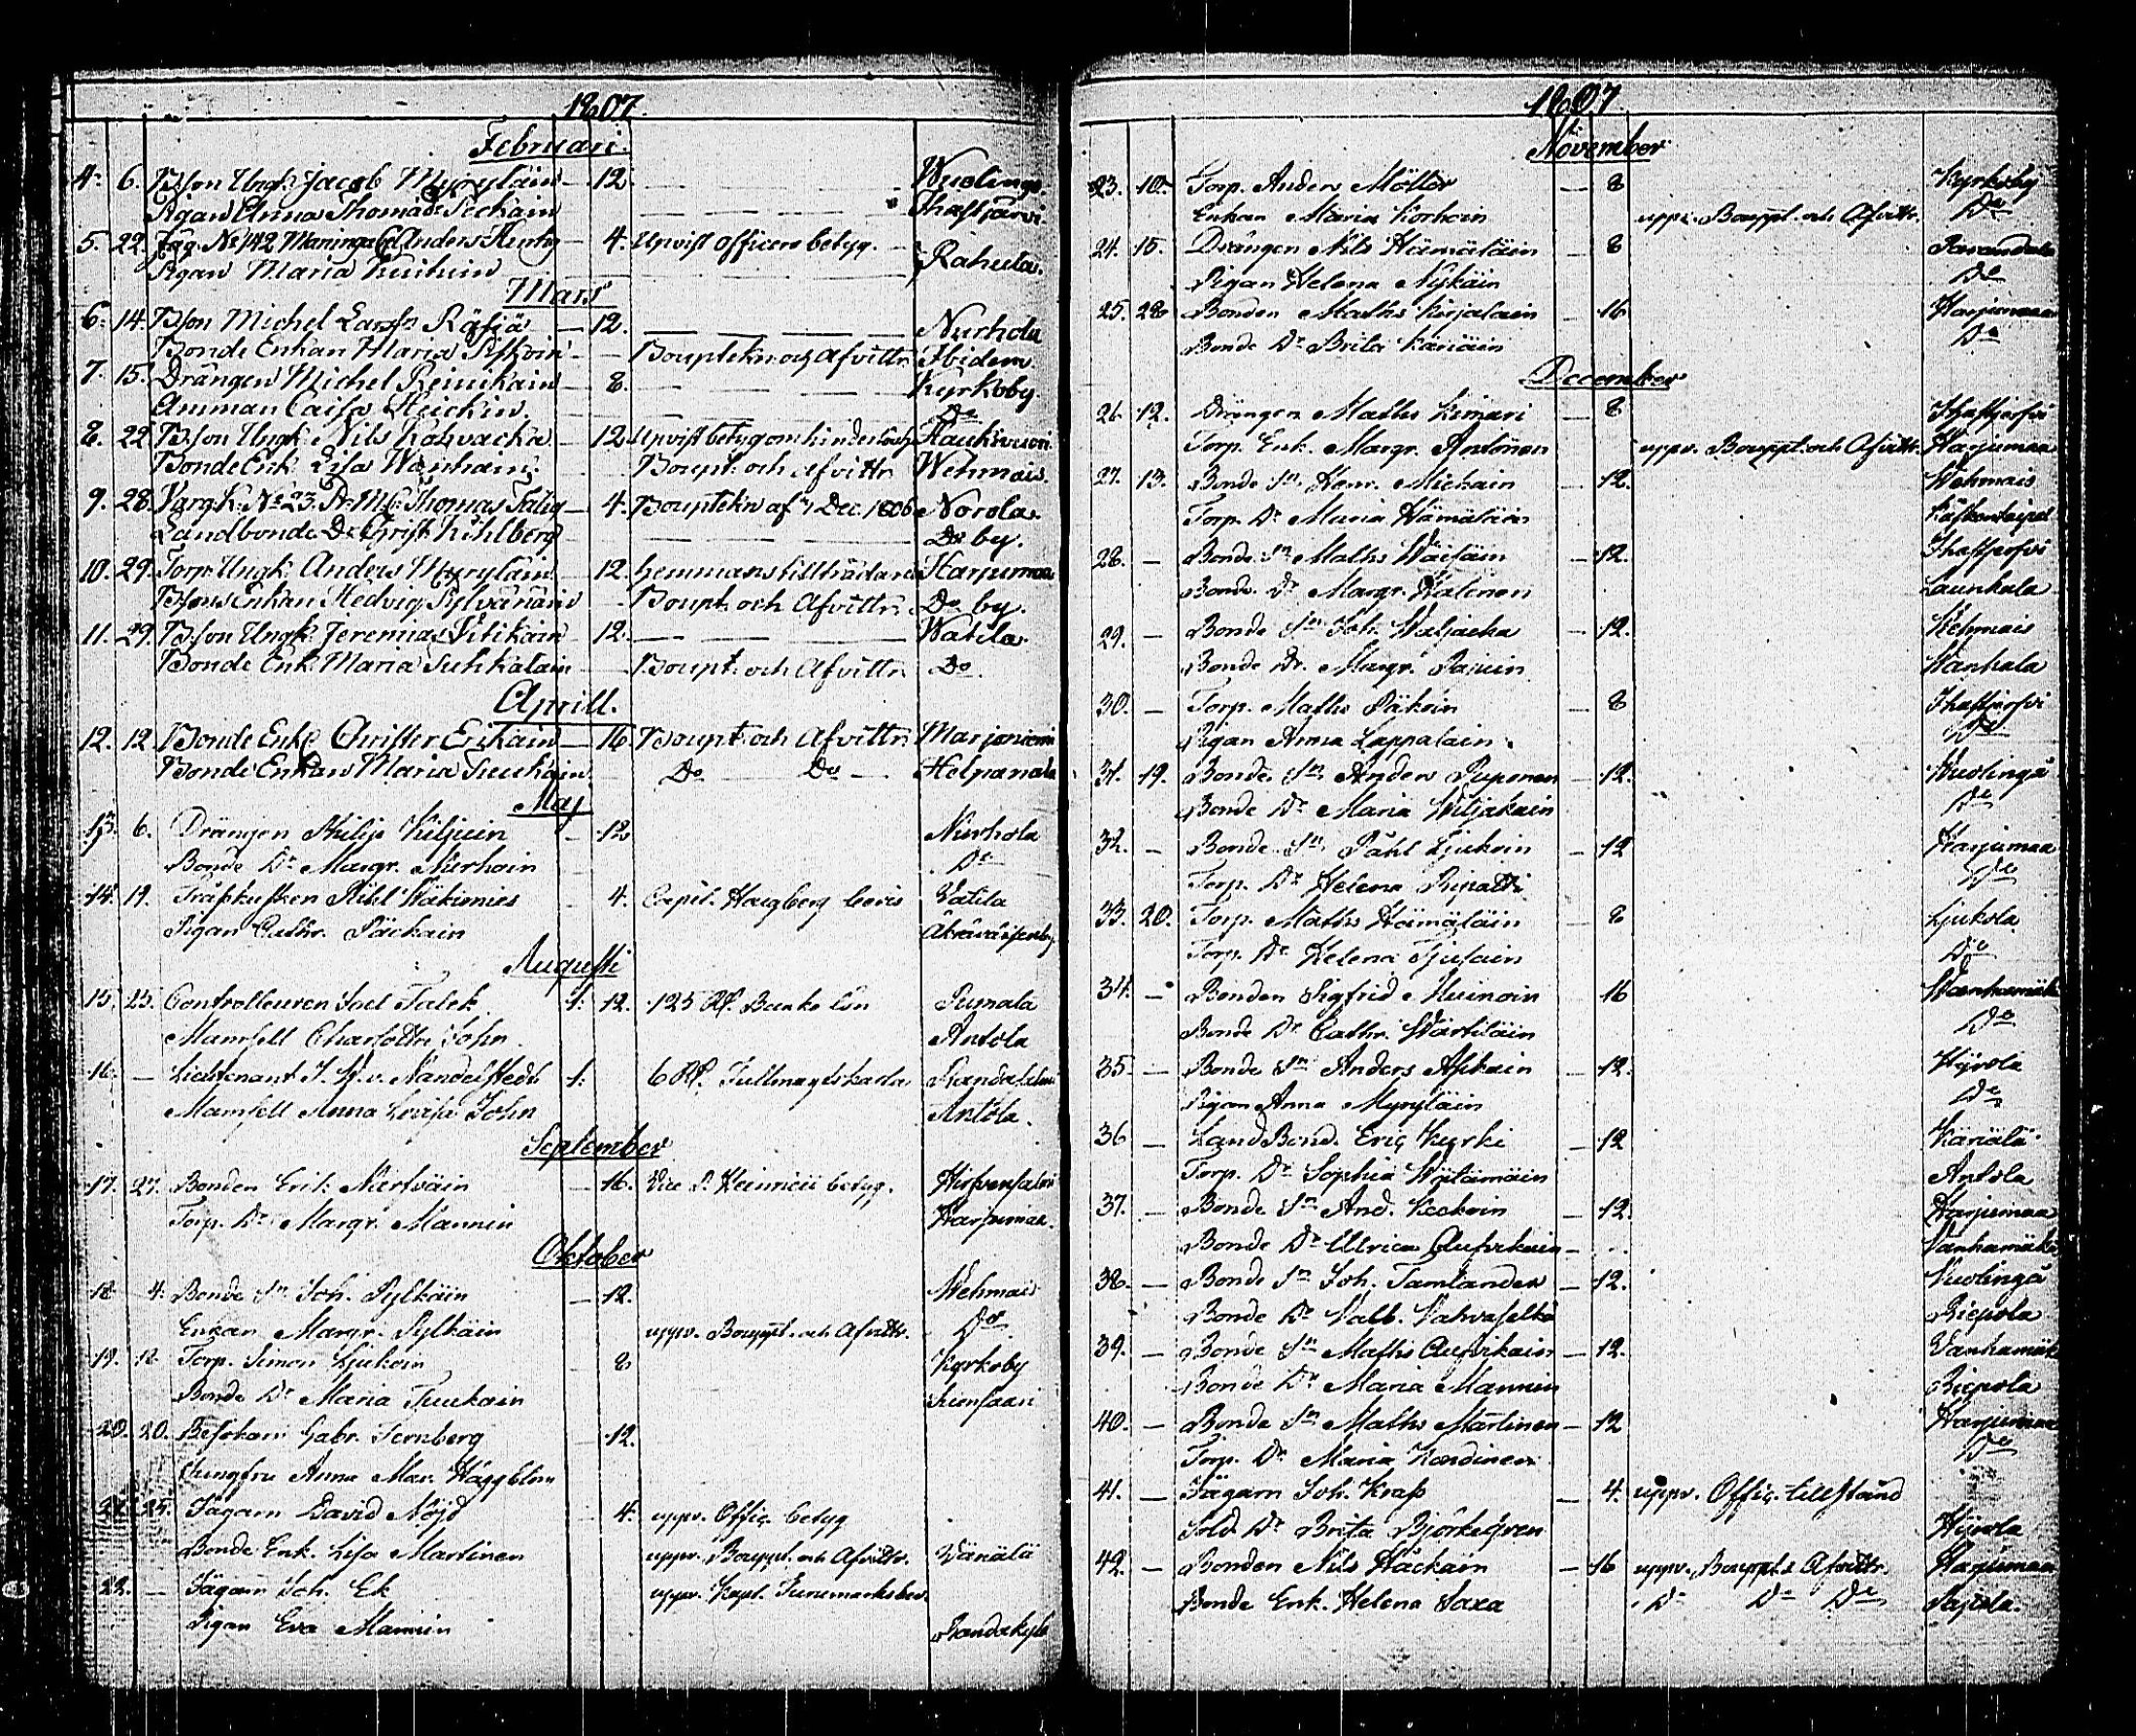 1807.
Februari.
4. 6. B:son Ungk: Jacob Myyryläin — 12. Wuolinge.
Pigan Anna Thomæ Dr Peckain Ihastjärvi
5. 22. Jäg. No 142 Maninga C. Anders — 4. Upvist officers betyg. Rahula.
Pigan Maria
Mars
6. 14. B:son Michel Larsson Räisä — 12. Nurhola
Bonde Enkan Maria Bouptekn: och Afvittr. Ibidem.
7. 15. Drängen Michel Reinikain — 8. Kyrkoby.
Amman Caisa Heickin. Do
8. 22. B:son Ungk: Nils — 12. Upvist betyg om hinderlösh. Haukivuori
Bonde Enk: Lisa Wanhain. Boupt: och Afvittr. Wehmais.
9. 28. Vargk: No 23. Thomas Salig — 4. Bouptekn af 7 Dec. 1806 Norola.
Landbonde Dr Christ: Kihlberg Do by.
10. 29. Torp: Ungk: Anders Myyryläin — 12. hemmans tillträdande Harjumaa
B:sons Enkan Hedvig Sylvänäin — Boupt: och Afvittr. Do by.
11. 29. B:son Ungk: Jeremias Pitikäin — 12. Watila.
Bonde Enk: Maria Suhkalain — Boupt: och Afvittr. Do.
Aprill.
12. 12. Bonde Enkl. Christer Erikäin — 16. Boupt: och Afvittr. Marjoniemi
Bonde Enkan Maria Tuukain Do Do Helpanala
Maj
13. 6. Drängen Philip Kiljuin — 12 Nurhola
Bonde Dr Margr. Nurhoin Do
14. 19. Träskusken Pähl Wäkimies 4. Capit. Hagberg bevis Vatila
Pigan Cathr. Päckain
Augusti
15. 23. Controlleuren Joel Talek 1: 12. 125 Rd. Banko lön Sumala
Mamsell Charlotta John. Antola
16. — Lieutenant J. W. v. Nandelstedt 1: 6 Rd. Fullmagtskarta Randasalmi
Mamsell Anna Lovisa John Antola.
September
17. 27. Bonden Erik Nerhväin — 16. Vice P. Heinricii betyg. Hirfvensalmi
Torp. Dr Margr. Mannin Harjumaa.
Oktober
18 4. Bonde Sn Joh. Pylkäin — 12. Wehmais
Enkan Margr. Pylkäin uppv. Bouppt. och Afvittr. Do
19. 18 Torp. Simon Ljukoin 8 Kyrkoby
Bonde Dr Maria Tuukain Luonsaari
20. 20. Besökarn Gabr. Ternberg 12.
Jungfru Anna Mar. Häggblom
21. 25. Jägarn David Nöjd 4. uppv. Offic. betyg
Bonde Enk. Lisa Martinen uppv. Bouppt. och Afvittr. Vänälä
22. — Jägarn Joh. Ek uppv. Kapt. Furumarks bev.
Pigan Eva Mannin Randakylä
1807
November
23. 10. Torp. Anders Möllär — 8 Kyrkoby
Enkan Maria Korhoin uppv. Bouppt. och Afvittr. Do
24. 15. Drängen Nils Hämäläin 8 Parandala
Pigan Helena Nyskäin Do
25. 28 Bonden Maths Kirjalain 16 Harjumaa
Bonde Dr Brita Käriäin Do
December
26. 12. Drängen Maths Kimari — 8 Ihastjerfvi
Torp. Enk. Margr. Antonen uppv. Bouppt. och Afvittr. Harjumaa
27. 13. Bonde Sn Henr. Michain — 12. Wehmais
Torp. Dr Maria Hämäläin
28. — Bonde Sn Maths Wäisäin — 12. Ihastjerfvi
Bonde Dr Margr. Halonen Launhala
29. — Bonde Sn Joh. Waljacka — 12. Wehmais
Bonde Dr. Margr. Pasuin Wanhala
30. — Torp. Maths Päkoin — 8 Ihastjerfvi
Pigan Anna Lappalain. Do
31. 19. Bonde Sn Anders Puponen — 12. Wuolinga
Bonde Dr Maria Wiljakain Do
32. — Bonde Sn Påhl Ljukoin — 12 Harjumaa
Torp. Dr Helena Ripatti Do
33. 20. Torp. Maths Hämäläin 8 Ljukola
Torp. Dr Helena Tjusain Do
34. — Bonden Sigfrid Muinoin 16 Wanhamäki
Bonde Dr Cathr. Wärtiläin Do
35. — Bonde Sn Anders Askain — 12. Hyrola
Pigan Anna Myryläin Do
36 — Land Bond. Eric Kyrki — 12 Käriälä
Torp. Dr Sophia Wäiämäin Antola
37. — Bonde Sn And. Keckoin — 12. Harjumaa
Bonde Dr Ulrica Aufvikain Vanhamäki
38. — Bonde Sn Joh. Tamlander — 12. Vuolinga
Bonde Dr Valb. Vahvaselkä Riepola
39. — Bonde Sn Maths Aufvikain — 12. Vanhamäki
Bonde Dr Maria Mannin Riepola
40. — Bonde Sn Maths Martinen — 12 Harjumaa
Torp. Dr Maria Kordinen Do
41. — Jägarn Joh. Krass — 4. uppv. Offic. tillstånd
Sold. Dr Brita Björkegren Hyrola
42. — Bonden Nils Häckäin — 16 uppv. Bouppt. & Afvittr. Harjumaa
Bonde Enk. Helena Saxa Do Do Do Pajula.